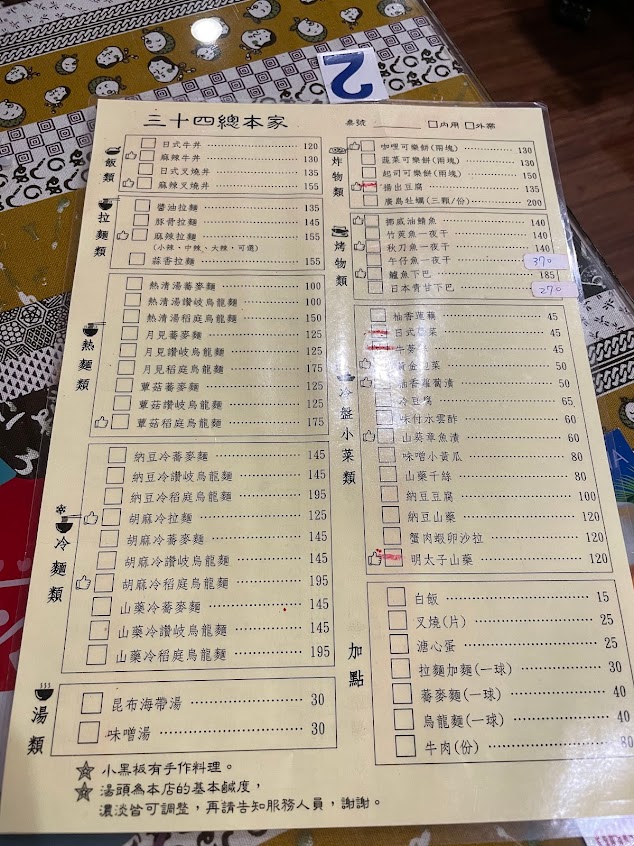 2
三十四總本家
桌號 □內用 □外帶
飯類
日式牛丼 120
麻辣牛丼 130
日式叉燒丼 135
麻辣叉燒丼 155
拉麵類
醬油拉麵 135
豚骨拉麵 145
麻辣拉麵 155
(小辣、中辣、大辣、可選)
蒜香拉麵 155
熱麵類
熱清湯蕎麥麵 100
熱清湯讚岐烏龍麵 100
熱清湯稻庭烏龍麵 150
月見蕎麥麵 125
月見讚岐烏龍麵 125
月見稻庭烏龍麵 175
蕈菇蕎麥麵 125
蕈菇讚岐烏龍麵 125
蕈菇稻庭烏龍麵 175
冷麵類
納豆冷蕎麥麵 145
納豆冷讚岐烏龍麵 145
納豆冷稻庭烏龍麵 195
胡麻冷拉麵 125
胡麻冷蕎麥麵 145
胡麻冷讚岐烏龍麵 145
胡麻冷稻庭烏龍麵 195
山藥冷蕎麥麵 145
山藥冷讚岐烏龍麵 145
山藥冷稻庭烏龍麵 195
湯類
昆布海帶湯 30
味噌湯 30
炸物類
咖哩可樂餅(兩塊) 130
蔬菜可樂餅(兩塊) 130
起司可樂餅(兩塊) 150
揚出豆腐 135
廣島牡蠣(三顆/份) 200
烤物類
挪威油鯖魚 140
竹莢魚一夜干 140
秋刀魚一夜干 140
午仔魚一夜干 370
鱸魚下巴 185
日本青甘下巴 270
冷盤小菜類
柚香蓮藕 45
日式 菜 45
牛蒡 45
黃金泡菜 50
柚香蘿蔔漬 50
冷豆腐 65
味付水雲醋 60
山葵章魚漬 60
味噌小黃瓜 80
山藥千絲 80
納豆豆腐 100
納豆山藥 120
蟹肉蝦卵沙拉 120
明太子山藥 120
加點
白飯 15
叉燒(片) 25
溏心蛋 25
拉麵加麵(一球) 30
蕎麥麵(一球) 40
烏龍麵(一球) 40
牛肉(份) 80
☆ 小黑板有手作料理。
☆ 湯頭為本店的基本鹹度,
濃淡皆可調整,再請告知服務人員,謝謝。